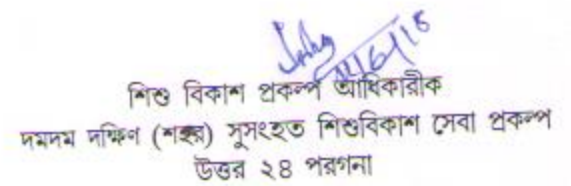 14/6/18
শিশু বিকাশ প্রকল্প আধিকারীক
দমদম দক্ষিণ (শহর) সুসংহত শিশুবিকাশ সেবা প্রকল্প
উত্তর ২৪ পরগনা